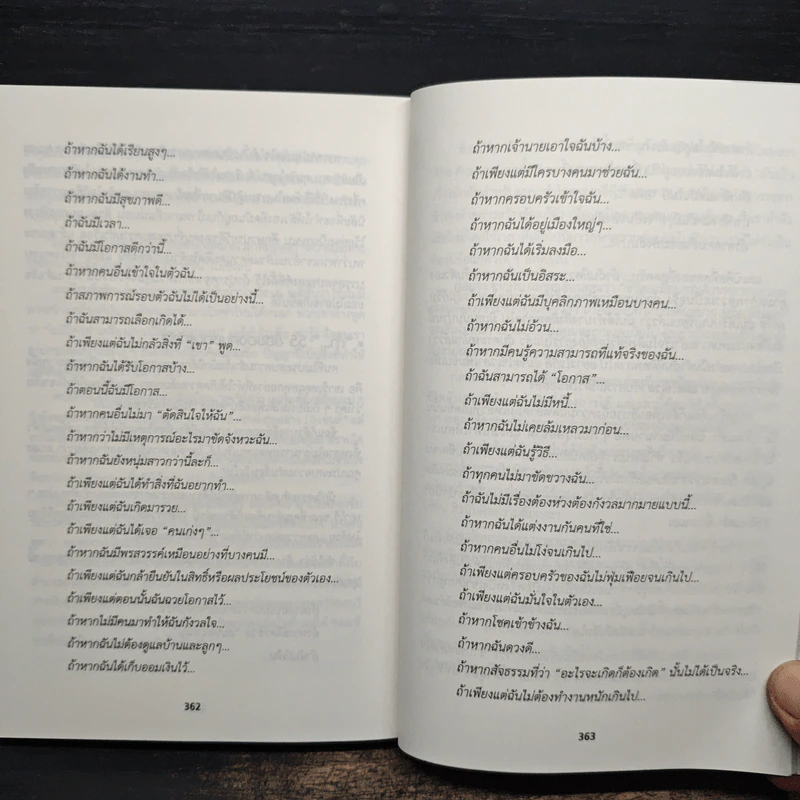 ถ้าหากฉันได้เรียนสูงๆ...
ถ้าหากฉันได้งานทำ...
ถ้าหากฉันมีสุขภาพดี...
ถ้าฉันมีเวลา...
ถ้าฉันมีโอกาสดีกว่านี้...
ถ้าหากคนอื่นเข้าใจในตัวฉัน...
ถ้าสภาพการณ์รอบตัวฉันไม่ได้เป็นอย่างนี้...
ถ้าฉันสามารถเลือกเกิดได้...
ถ้าเพียงแต่ฉันไม่กลัวสิ่งที่ “เขา” พูด...
ถ้าหากฉันได้รับโอกาสบ้าง...
ถ้าตอนนี้ฉันมีโอกาส...
ถ้าหากคนอื่นไม่มา “ตัดสินใจให้ฉัน”...
ถ้าหากว่าไม่มีเหตุการณ์อะไรมาขัดจังหวะฉัน...
ถ้าหากฉันยังหนุ่มสาวกว่านี้ละก็...
ถ้าเพียงแต่ฉันได้ทำสิ่งที่ฉันอยากทำ...
ถ้าเพียงแต่ฉันเกิดมารวย...
ถ้าเพียงแต่ฉันได้เจอ “คนเก่งๆ”...
ถ้าหากฉันมีพรสวรรค์เหมือนอย่างที่บางคนมี...
ถ้าเพียงแต่ฉันกล้ายืนยันในสิทธิ์หรือผลประโยชน์ของตัวเอง...
ถ้าเพียงแต่ตอนนั้นฉันฉวยโอกาสไว้...
ถ้าหากไม่มีคนมาทำให้ฉันกังวลใจ...
ถ้าหากฉันไม่ต้องดูแลบ้านและลูกๆ...
ถ้าหากฉันได้เก็บออมเงินไว้...
362
ถ้าหากเจ้านายเอาใจฉันบ้าง...
ถ้าเพียงแต่มีใครบางคนมาช่วยฉัน...
ถ้าหากครอบครัวเข้าใจฉัน...
ถ้าหากฉันได้อยู่เมืองใหญ่ๆ...
ถ้าหากฉันได้เริ่มลงมือ...
ถ้าหากฉันเป็นอิสระ...
ถ้าเพียงแต่ฉันมีบุคลิกภาพเหมือนบางคน...
ถ้าหากฉันไม่อ้วน...
ถ้าหากมีคนรู้ความสามารถที่แท้จริงของฉัน...
ถ้าฉันสามารถได้ “โอกาส”...
ถ้าเพียงแต่ฉันไม่มีหนี้...
ถ้าหากฉันไม่เคยล้มเหลวมาก่อน...
ถ้าเพียงแต่ฉันรู้วิธี...
ถ้าทุกคนไม่มาขัดขวางฉัน...
ถ้าฉันไม่มีเรื่องต้องห่วงต้องกังวลมากมายแบบนี้...
ถ้าหากฉันได้แต่งงานกับคนที่ใช่...
ถ้าหากคนอื่นไม่โง่จนเกินไป...
ถ้าเพียงแต่ครอบครัวของฉันไม่ฟุ่มเฟือยจนเกินไป...
ถ้าเพียงแต่ฉันมั่นใจในตัวเอง...
ถ้าหากโชคเข้าข้างฉัน...
ถ้าหากฉันดวงดี...
ถ้าหากสัจธรรมที่ว่า “อะไรจะเกิดก็ต้องเกิด” นั้นไม่ได้เป็นจริง...
ถ้าเพียงแต่ฉันไม่ต้องทำงานหนักเกินไป...
363